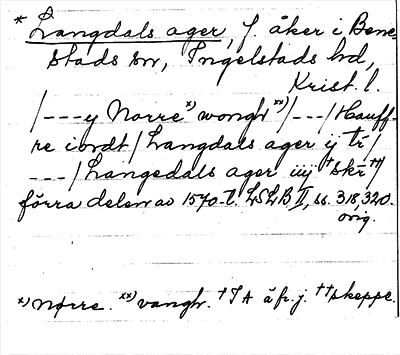 * Langdals ager, f. åker i Bene-
stads sn, Ingelstads hd,
Krist. l.
/---y Norre x) wongh xx)/---/Hauff-
re iordt/Langdals ager ij tr/
---/Langedals ager iiij † skr ††/
förra delen av 1570-t. LSLB II, ss. 318, 320.
orig.
x) Nørre. xx) vangh. † I A å fr. j. †† skeppe.